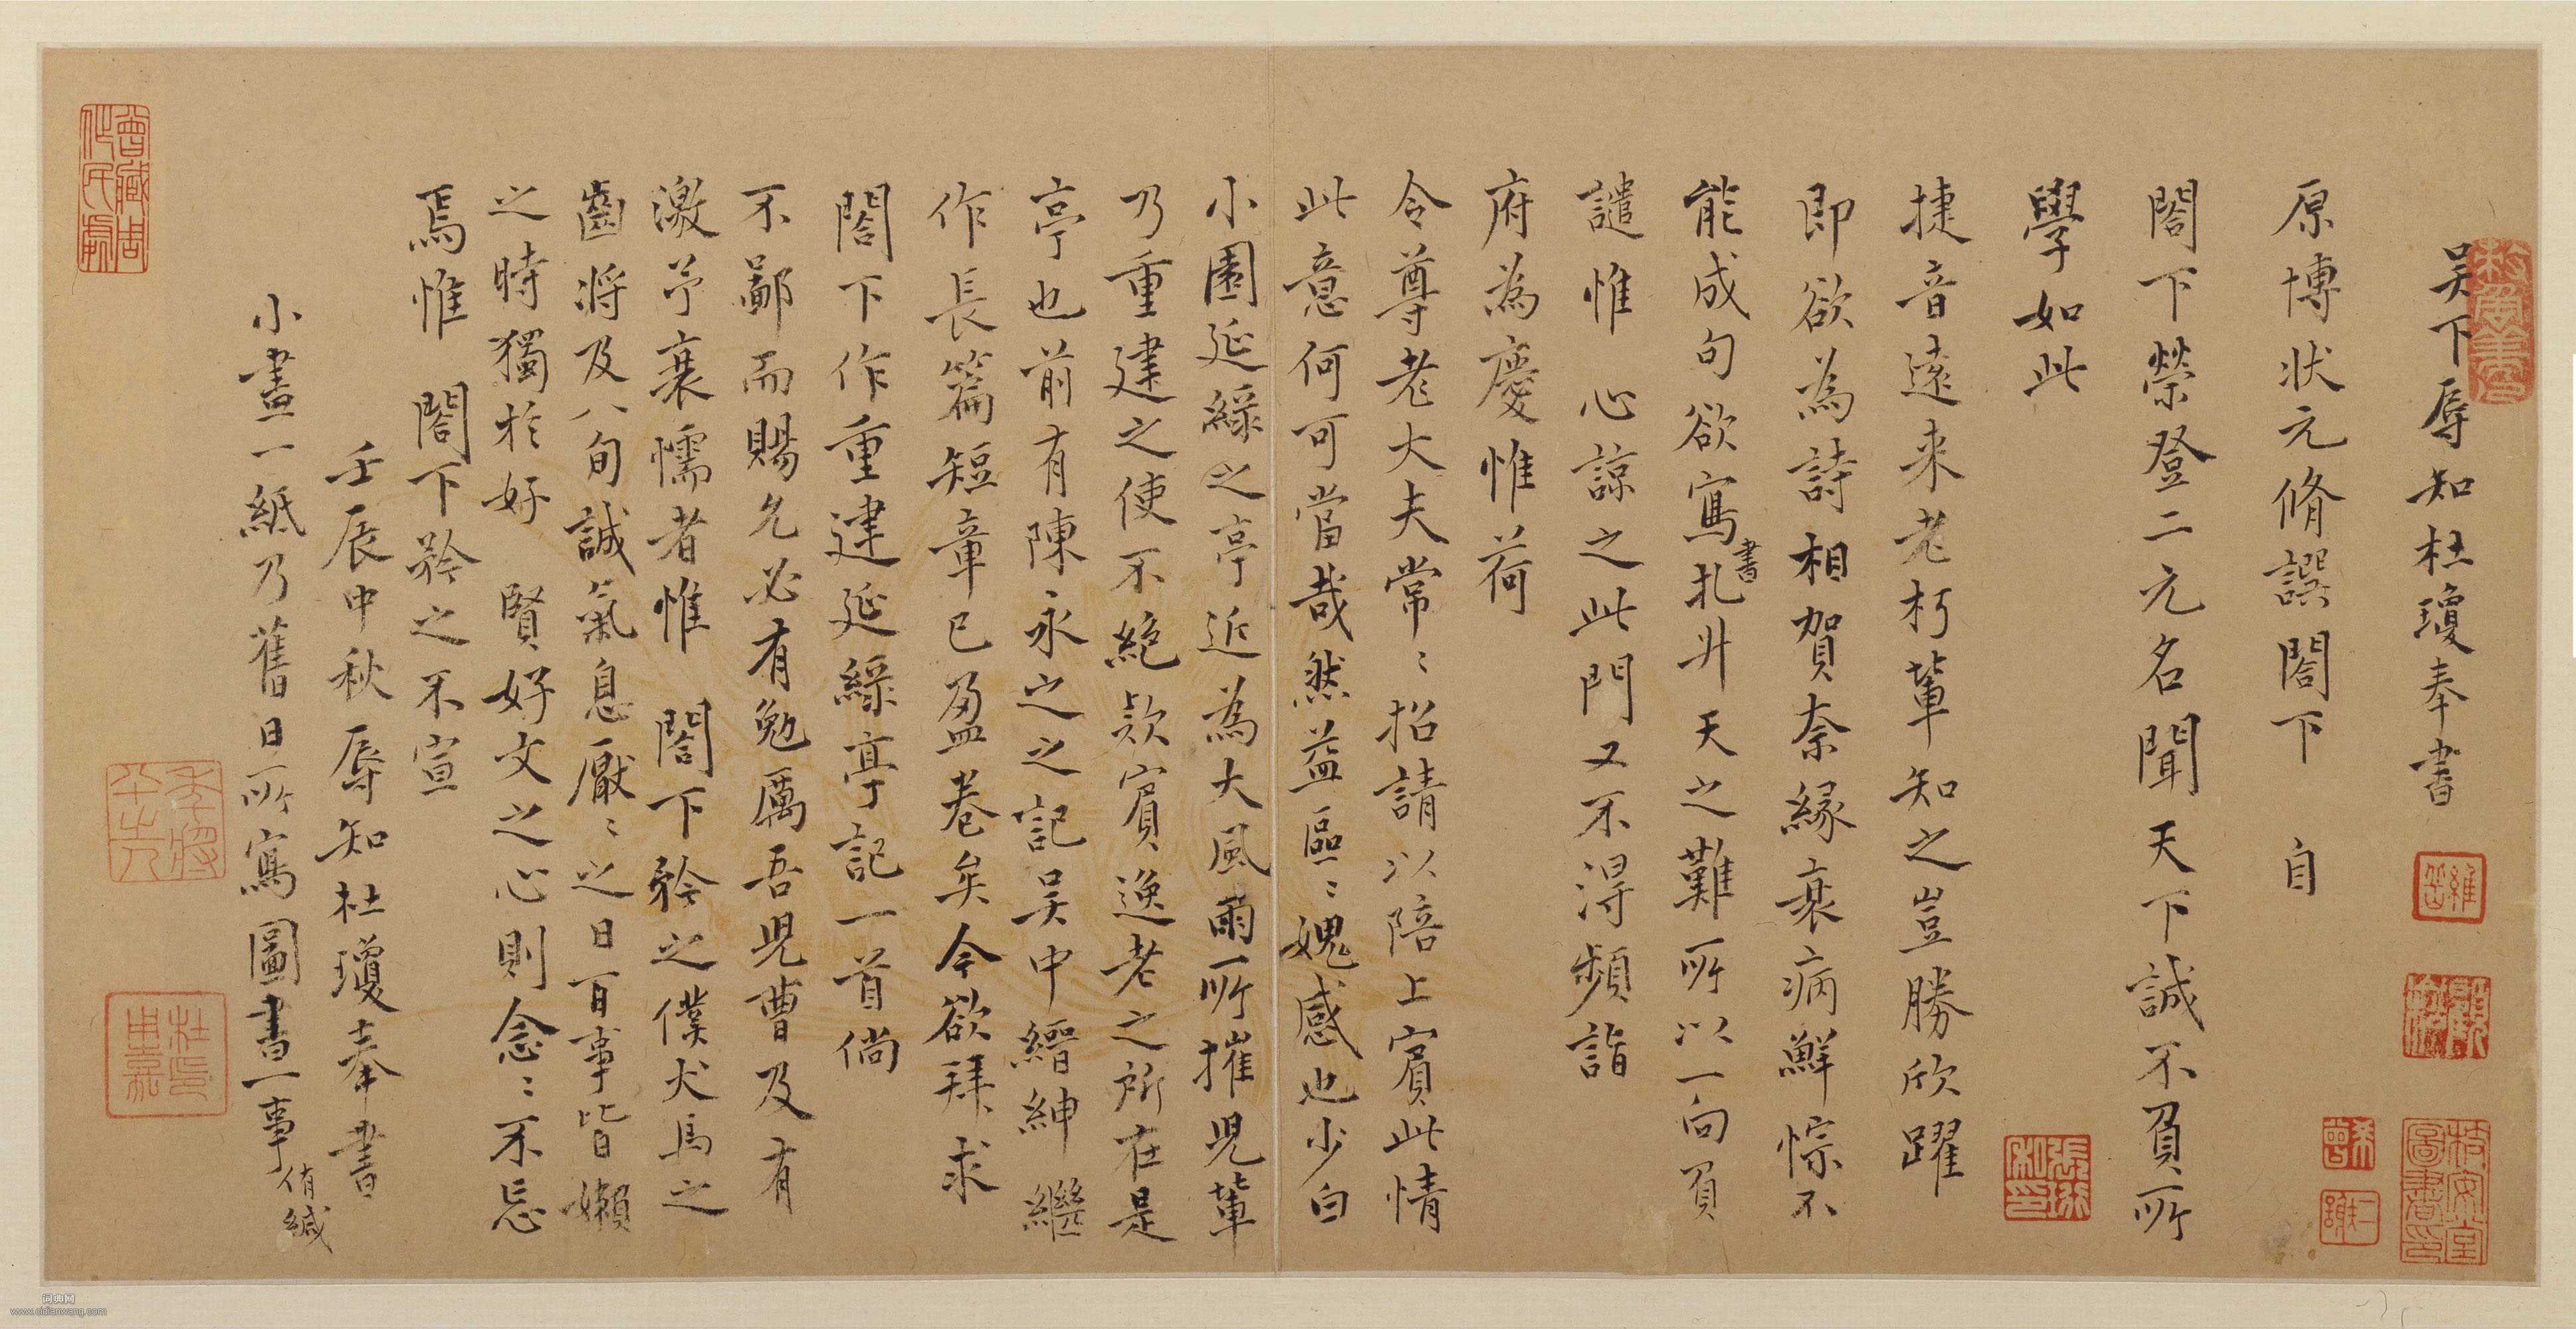 吴下辱知杜瓊奉書
原博状元脩譔閤下　自
閤下榮登二元名聞天下誠不負所
學如此
捷音遠来老朽輩知之豈勝欣躍
即欲為詩相賀奈縁衰病鮮悰不
能成句欲寫書扎升天之難所以一向負
譴惟　心諒之此門又不得頻詣
府為慶惟荷
令尊老大夫常〻招請以陪上賓此情
此意何可當哉然益區〻媿感也少白
小園延緑之亭近為大風雨所摧児輩
乃重建之使不絶欵賓逸老之所在是
亭也前有陳永之之記吴中縉紳繼
作長篇短章已盈巻矣今欲拜求
閤下作重建延緑亭記一首倘
不鄙而賜允必有勉厲吾児曹及有
激予衰懦者惟　閤下矜之僕犬馬之
齒将及八旬誠氣息厭〻之日百事皆嬾
之時獨於好　賢好文之心則念〻不忘
焉惟　閤下矜之不宣
壬辰中秋辱知杜瓊奉書
小畫一紙乃舊日所寫圖書一事侑緘
曾藏周
作民處
杜氏
用嘉
詞典网
www.cidianwang.com